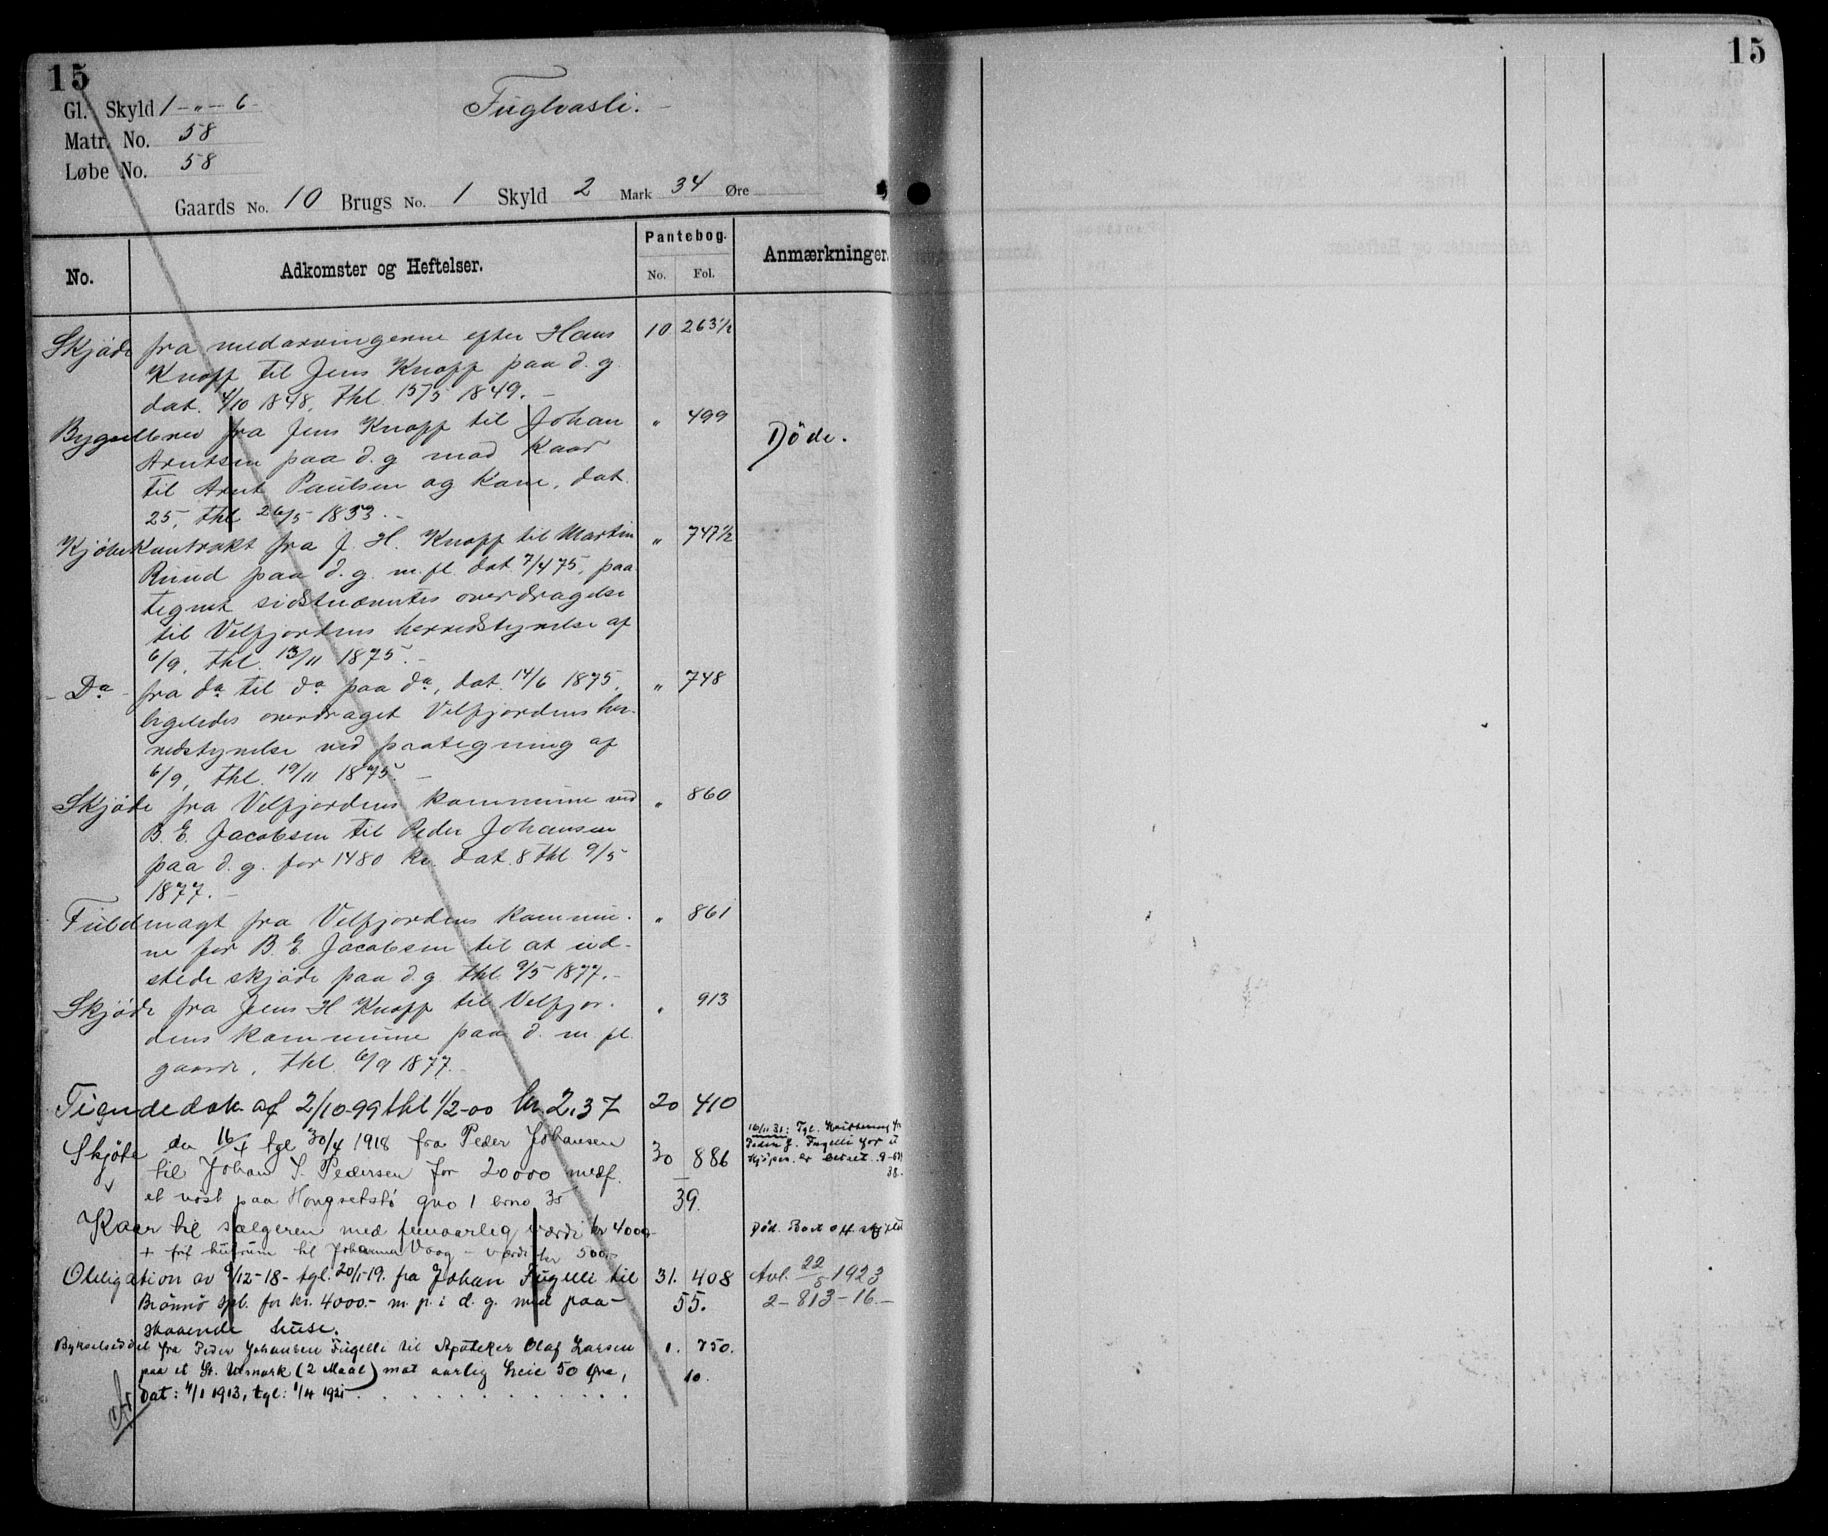 15
15
Gl. Skyld 1 - " - 6 -
Fuglvasli. -
Matr. No. 58
Løbe No. 58
Gaards No. 10 Brugs No. 1 Skyld 2 Mark 34 Øre
No. Adkomster og Heftelser. Pantebog. No. Fol. Anmærkninger.
Skjøde fra medarvingerne efter Hans 10 263½
Knoff til Jens Knoff paa d. g.
dat. 4/10 1848, thl. 15/5 1849. -
Bygselbrev fra Jens Knoff til Johan " 499
Arntsen paa d. g mod Kaar Døde.
til Arnt Paulsen og Kone, dat.
25, thl 26/5 1853. -
Kjøbekontrakt fra J. H. Knoff til Martin " 747½
Ruud paa d. g. m. fl. dat. 7/4 75, paa
tegnet sidstnævntes overdragelse
til Velfjordens herredstyrelse af
6/9, thl. 13/11 1875. -
- Da - fra da til da paa da, dat. 14/6 1875, " 748
ligeledes overdraget Velfjordens her-
redstyrelse ved paategning af
6/9, thl. 19/11 1875. -
Skjøde fra Velfjordens kommune ved " 860
B. E. Jacobsen til Peder Johansen
paa d. g. for 1480 kr. dat. 8 thl 9/5
1877. -
Fuldmagt fra Velfjordens kommu- " 861
ne for B. E. Jacobsen til at ud-
stede skjøde paa d. g. thl. 9/5 1877. -
Skjøde fra Jens H Knoff til Velfjor- " 913
dens kommune paa d. m fl.
gaarde, thl. 6/9 1877. -
Tiendedok af 2/10-99 thl ½-00 kr. 2,37 20 410
Skjøte du 16/4 tgl 30/4 1918 fra Peder Johansen 30 886
16/11 31: Tgl. Kvittering fra
Peder J. Fugelli for at
Kjøpes. er betalt. 9-
38.
til Johan S. Pedersen for 20000 medf.
et nøst paa Hongsetstø gno 1 brno 35 39.
Kaar til sælgeren med femaarlig værdi kr 4000 Død. Bort
+ frit husrum til Johanna Vaag - værdi kr 500,-
Obligation av 9/12-18 - tgl. 20/1-19. fra Johan Fugelli til 31. 408 Avl. 22/5 1923
Brønnø spb. for kr. 4000.- m. p. i d. g. med paa- 55. 2-813-16.-
staaende huse.
Bygselseddel fra Peder Johansen Fugelli til Apoteker Olaf Larsen 1. 750.
paa et St. Utmark (2 Maal) mot aarlig Leie 50 Øre, 10.
Dat: 4/1 1913, tgl: 1/4 1921